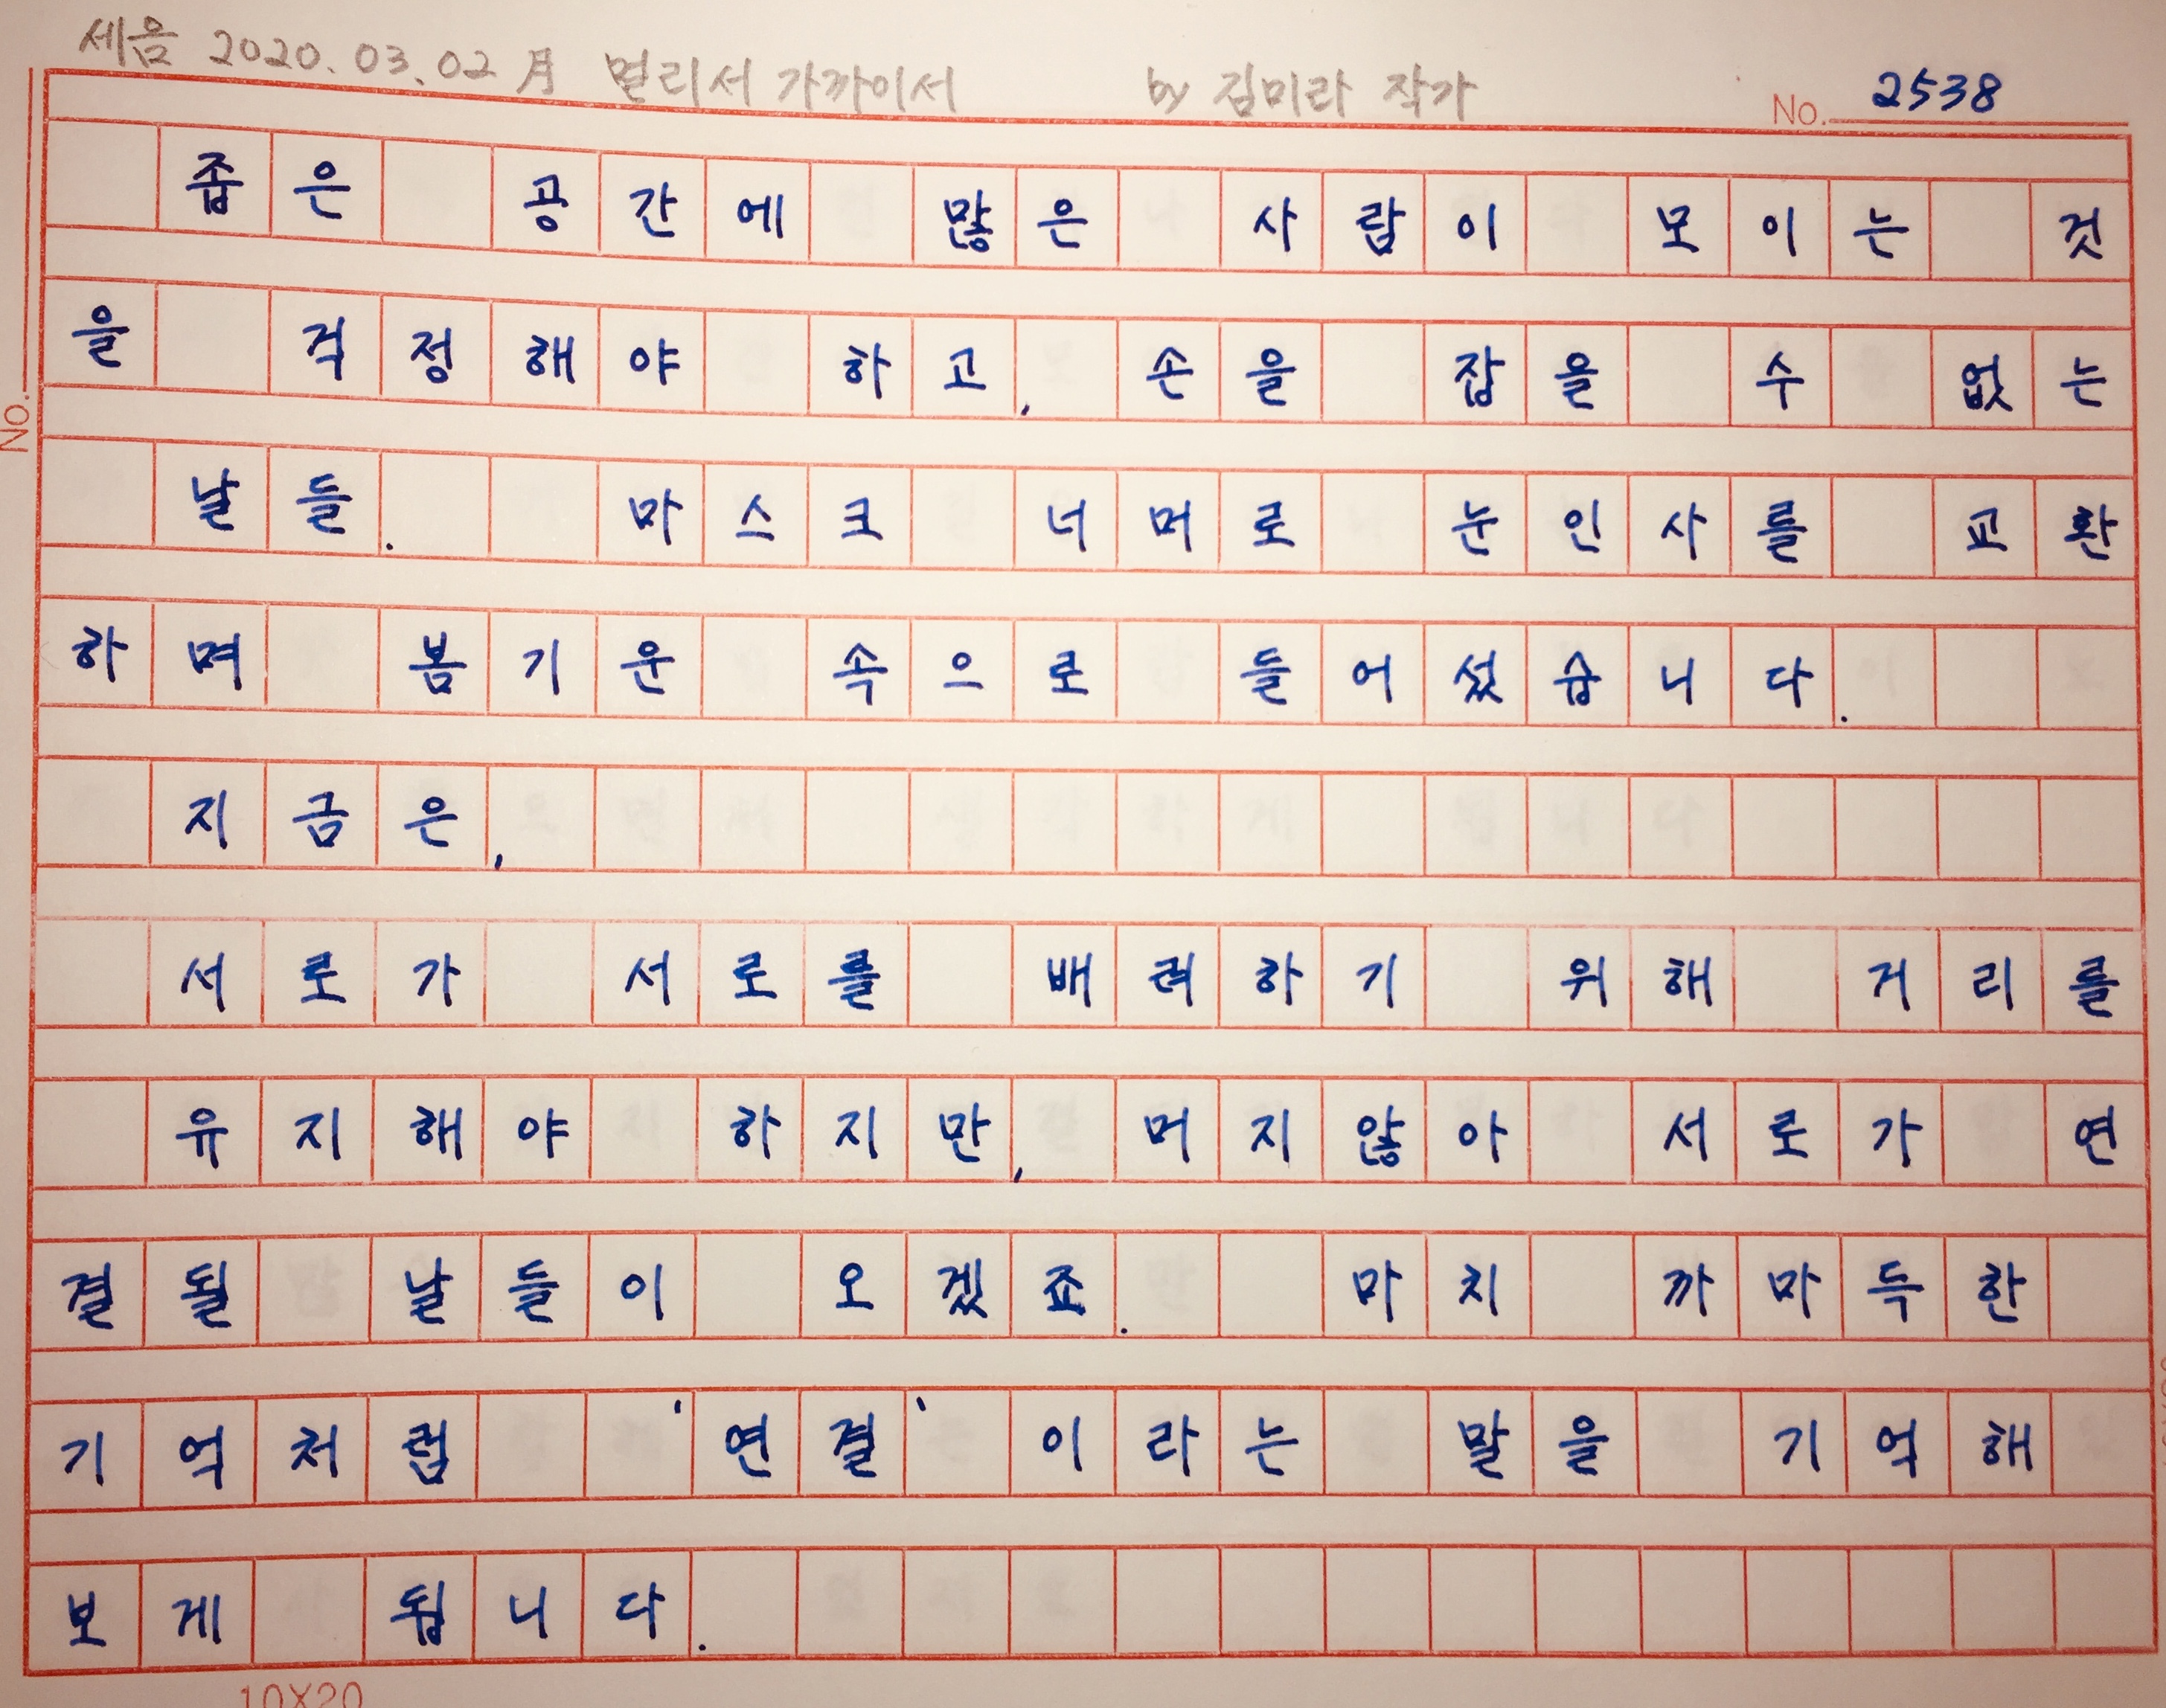 세음 2020.03.02 月 멀리서 가까이서 by 김미라 작가
No. 2538
좁은 공간에 많은 사람이 모이는 것
을 걱정해야 하고, 손을 잡을 수 없는
날들. 마스크 너머로 눈인사를 교환
하며 봄기운 속으로 들어섰습니다.
지금은,
서로가 서로를 배려하기 위해 거리를
유지해야 하지만, 머지않아 서로가 연
결될 날들이 오겠죠. 마치 까마득한
기억처럼 '연결'이라는 말을 기억해
보게 됩니다.
No.
10X20